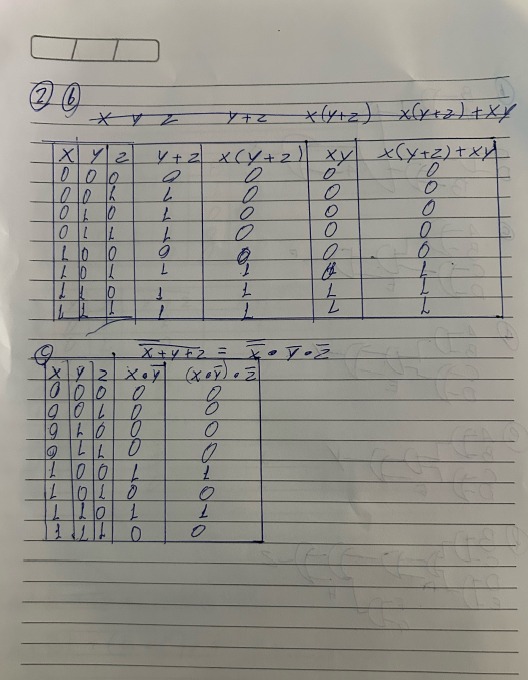 ② ⓑ
X Y Z Y+Z X(Y+Z) X(Y+Z)+XY
X Y Z Y+Z X(Y+Z) XY X(Y+Z)+XY
0 0 0 0 0 0 0
0 0 1 1 0 0 0
0 1 0 1 0 0 0
0 1 1 1 0 0 0
1 0 0 0 0 0 0
1 0 1 1 1 0 1
1 1 0 1 1 1 1
1 1 1 1 1 1 1
ⓒ X̅+̅Y̅+̅Z̅ = X̿•Y̅•Z̅
X Y Z X•Y̅ (X•Y̅)•Z̅
0 0 0 0 0
0 0 1 0 0
0 1 0 0 0
0 1 1 0 0
1 0 0 1 1
1 0 1 0 0
1 1 0 1 1
1 1 1 0 0